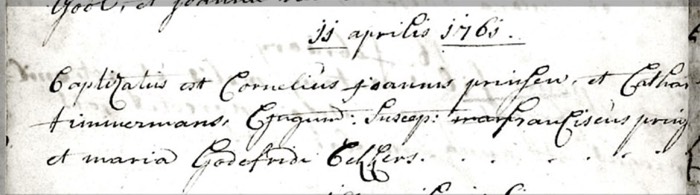 11 aprilis 1761.
Baptizatus est Cornelius joannis prinsen, et Cathar
timmermans, Conjugum: Suscep: franciscus prins
et maria Godefridi Cellers.